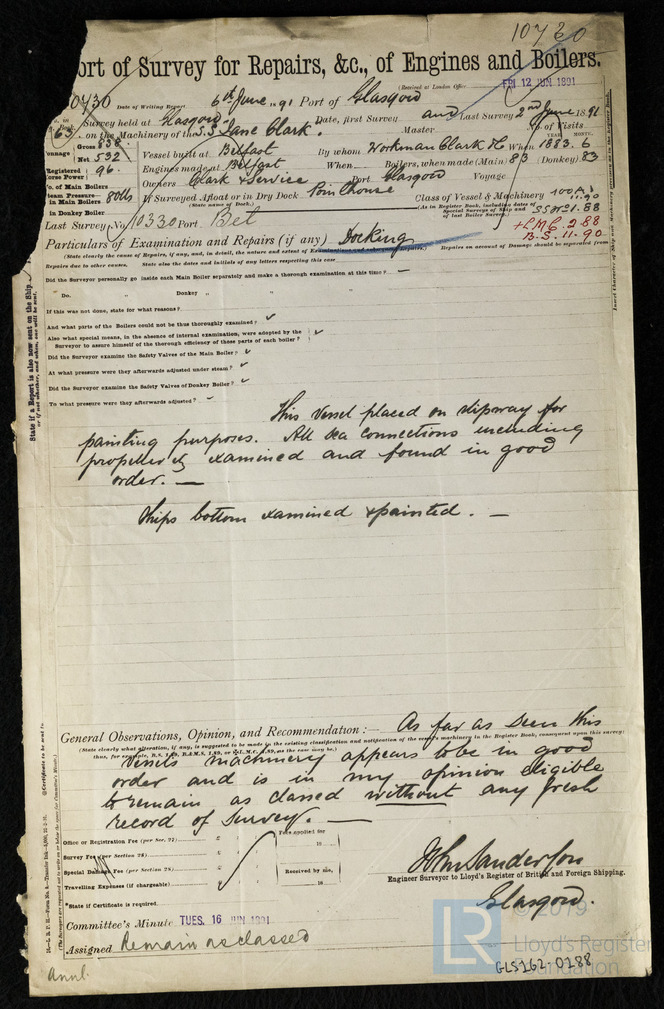 10730
ort of Survey for Repairs, &c., of Engines and Boilers.
(Received at London Office FRI 12 JUN 1891
0730 Date of Writing Report 6th June 91 Port of Glasgow
Survey held at Glasgow Date, first Survey and Last Survey 2nd June 1891
63. on the Machinery of the S.S. "Jane Clark". Master No. of Visits
Gross 838
Tonnage
Net 532
Vessel built at Belfast By whom Workman Clark & Co When 1883. 6
YEAR. MONTH.
Registered Horse Power 96. Engines made at Belfast When Boilers, when made (Main) 83 (Donkey) 83
No. of Main Boilers Owners Clark & Service Port Glasgow Voyage
Steam Pressure in Main Boilers 80lbs If Surveyed Afloat or in Dry Dock Pointhouse Class of Vessel & Machinery 100A1 11.90
(State name of Dock.) (As in Register Book, including dates of Special Surveys of Ship and of last Boiler Survey.) SS No 1. 88
in Donkey Boiler
+LMC 2.88
Last Survey No 10330 Port Bel B.S. 11.90
Particulars of Examination and Repairs (if any) Docking
(State clearly the cause of Repairs, if any, and, in detail, the nature and extent of Examinations and Repairs. Repairs on account of Damage should be separated from
Repairs due to other causes. State also the dates and initials of any letters respecting this case
Did the Surveyor personally go inside each Main Boiler separately and make a thorough examination at this time? —
Do. " Donkey " " "
If this was not done, state for what reasons?
And what parts of the Boilers could not be thoroughly examined? ✓
Also what special means, in the absence of internal examination, were adopted by the
Surveyor to assure himself of the thorough efficiency of those parts of each boiler? ✓
Did the Surveyor examine the Safety Valves of the Main Boiler? ✓
At what pressure were they afterwards adjusted under steam? ✓
Did the Surveyor examine the Safety Valves of Donkey Boiler? ✓
To what pressure were they afterwards adjusted? ✓
This vessel placed on slipway for
painting purposes. All sea connections including
propeller &c examined and found in good
order. —
Ships bottom examined & painted. —
General Observations, Opinion, and Recommendation:— As far as seen this
(State clearly what alteration, if any, is suggested to be made in the existing classification and notification of the vessel's machinery in the Register Book, consequent upon this survey:
thus, for example, B.S. 1,89, B.&M.S. 1,89, or L.M.C. 1,89, as the case may be.)
Vessels machinery appears to be in good
order and is in my opinion eligible
to remain as classed without any fresh
record of Survey. —
Office or Registration Fee (per Sec. 27) £ Fees applied for
Survey Fee (per Section 28) £ 18
Special Damage Fee (per Section 28) £ Received by me,
Travelling Expenses (if chargeable) £ 18
John Sanderson
Engineer Surveyor to Lloyd's Register of British and Foreign Shipping.
*State if Certificate is required.
Glasgow.
Committee's Minute TUES. 16 JUN 1891
Assigned Remain as classed
State if a Report is also now sent on the Ship
or if not whether, and when, one will be sent.
© 2019
LR Lloyd's Register
Foundation
GLS162-0288